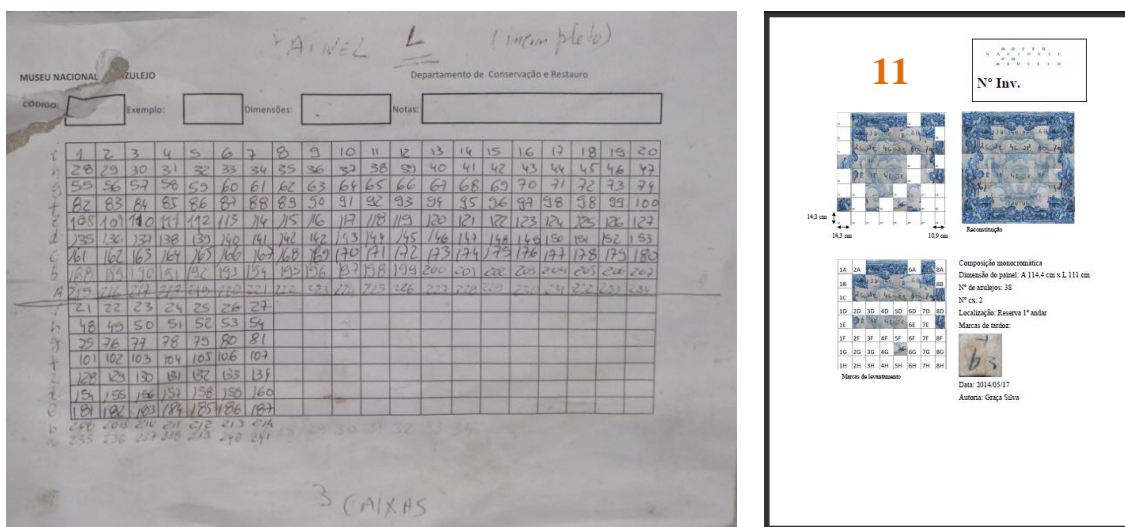 PAINEL L (incompleto)
MUSEU NACIONAL ZULEJO
Departamento de Conservação e Restauro
CÓDIGO: Exemplo: Dimensões: Notas:
i 1 2 3 4 5 6 7 8 9 10 11 12 13 14 15 16 17 18 19 20
h 28 29 30 31 32 33 34 35 36 37 38 39 40 41 42 43 44 45 46 47
g 55 56 57 58 59 60 61 62 63 64 65 66 67 68 69 70 71 72 73 74
f 82 83 84 85 86 87 88 89 90 91 92 93 94 95 96 97 98 98 99 100
e 108 109 110 111 112 113 114 115 116 117 118 119 120 121 122 123 124 125 126 127
d 135 136 137 138 139 140 141 142 142 143 144 145 146 147 148 149 150 151 152 153
c 161 162 163 164 165 166 167 168 169 170 171 172 173 174 175 176 177 178 179 180
b 188 189 190 191 192 193 194 195 196 197 198 199 200 201 202 203 204 205 206 207
A 215 216 217 219 220 221 222 223 226 227 228 229 230 231 232 233 234
21 22 23 24 25 26 27
h 48 49 50 51 52 53 54
g 75 76 77 78 79 80 81
f 101 102 103 104 105 106 107
128 129 130 131 132 133 134
d 154 155 156 157 158 159 160
c 181 182 183 184 185 186 187
b 208 209 210 211 212 213 214
a 235 236 237 239 240 241 29 30 31 32 33 34
3 CAIXAS
11
MUSEU
NACIONAL
DO
AZULEJO
Nº Inv.
14,3 cm
14,3 cm 10,9 cm
Reconstituição
1A 2A 6A 8A
1B 8B
1C
1D 2D 3D 4D 5D 6D 7D 8D
1E 6E 7E
1F 2F 3F 4F 5F 6F 7F 8F
1G 2G 3G 4G 6G 7G 8G
1H 2H 3H 4H 5H 6H 7H 8H
Marcas de levantamento
Composição monocromática
Dimensão do painel: A 114,4 cm x L 111 cm
Nº de azulejos: 38
Nº cx: 2
Localização: Reserva 1º andar
Marcas de tardoz:
Data: 2014/05/17
Autoria: Graça Silva